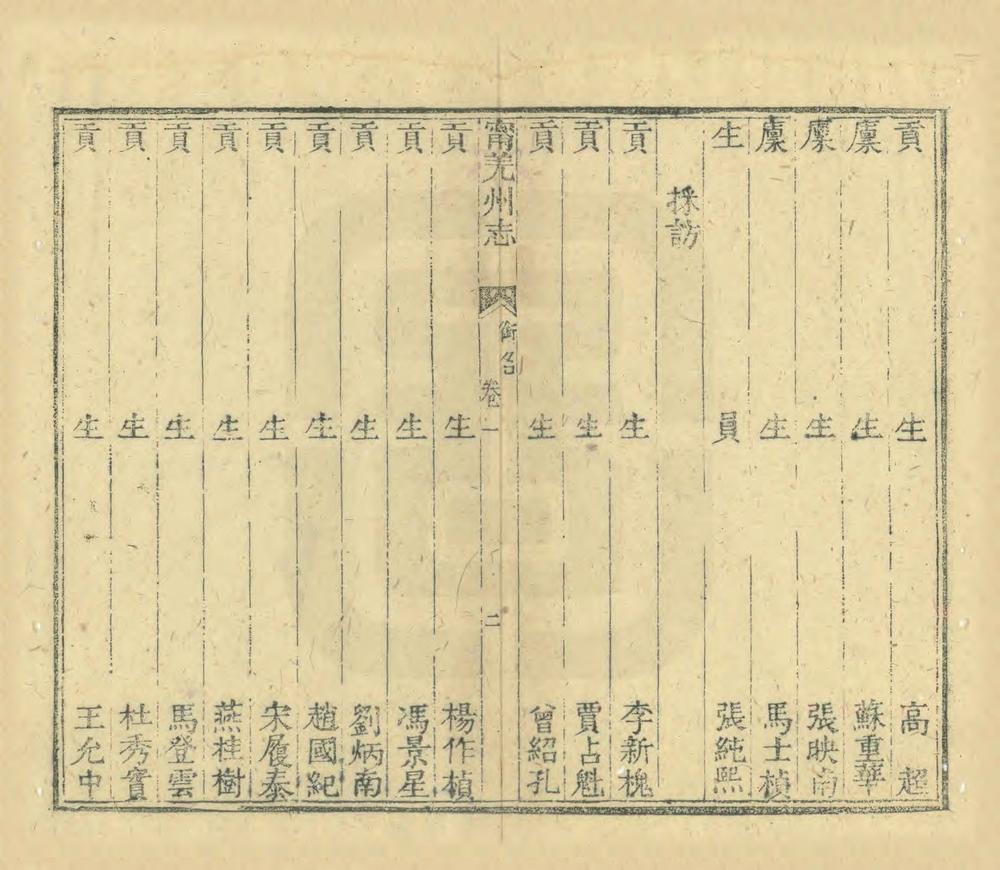 貢生高超
廩生蘇重華
廩生張映南
廩生馬士楨
生員張純熙
採訪
貢生李新槐
貢生賈占魁
貢生曾紹孔
甯羌州志 銜名 卷一 二
貢生楊作楨
貢生馮景星
貢生劉炳南
貢生趙國紀
貢生宋履泰
貢生燕桂樹
貢生馬登雲
貢生杜秀實
貢生王允中